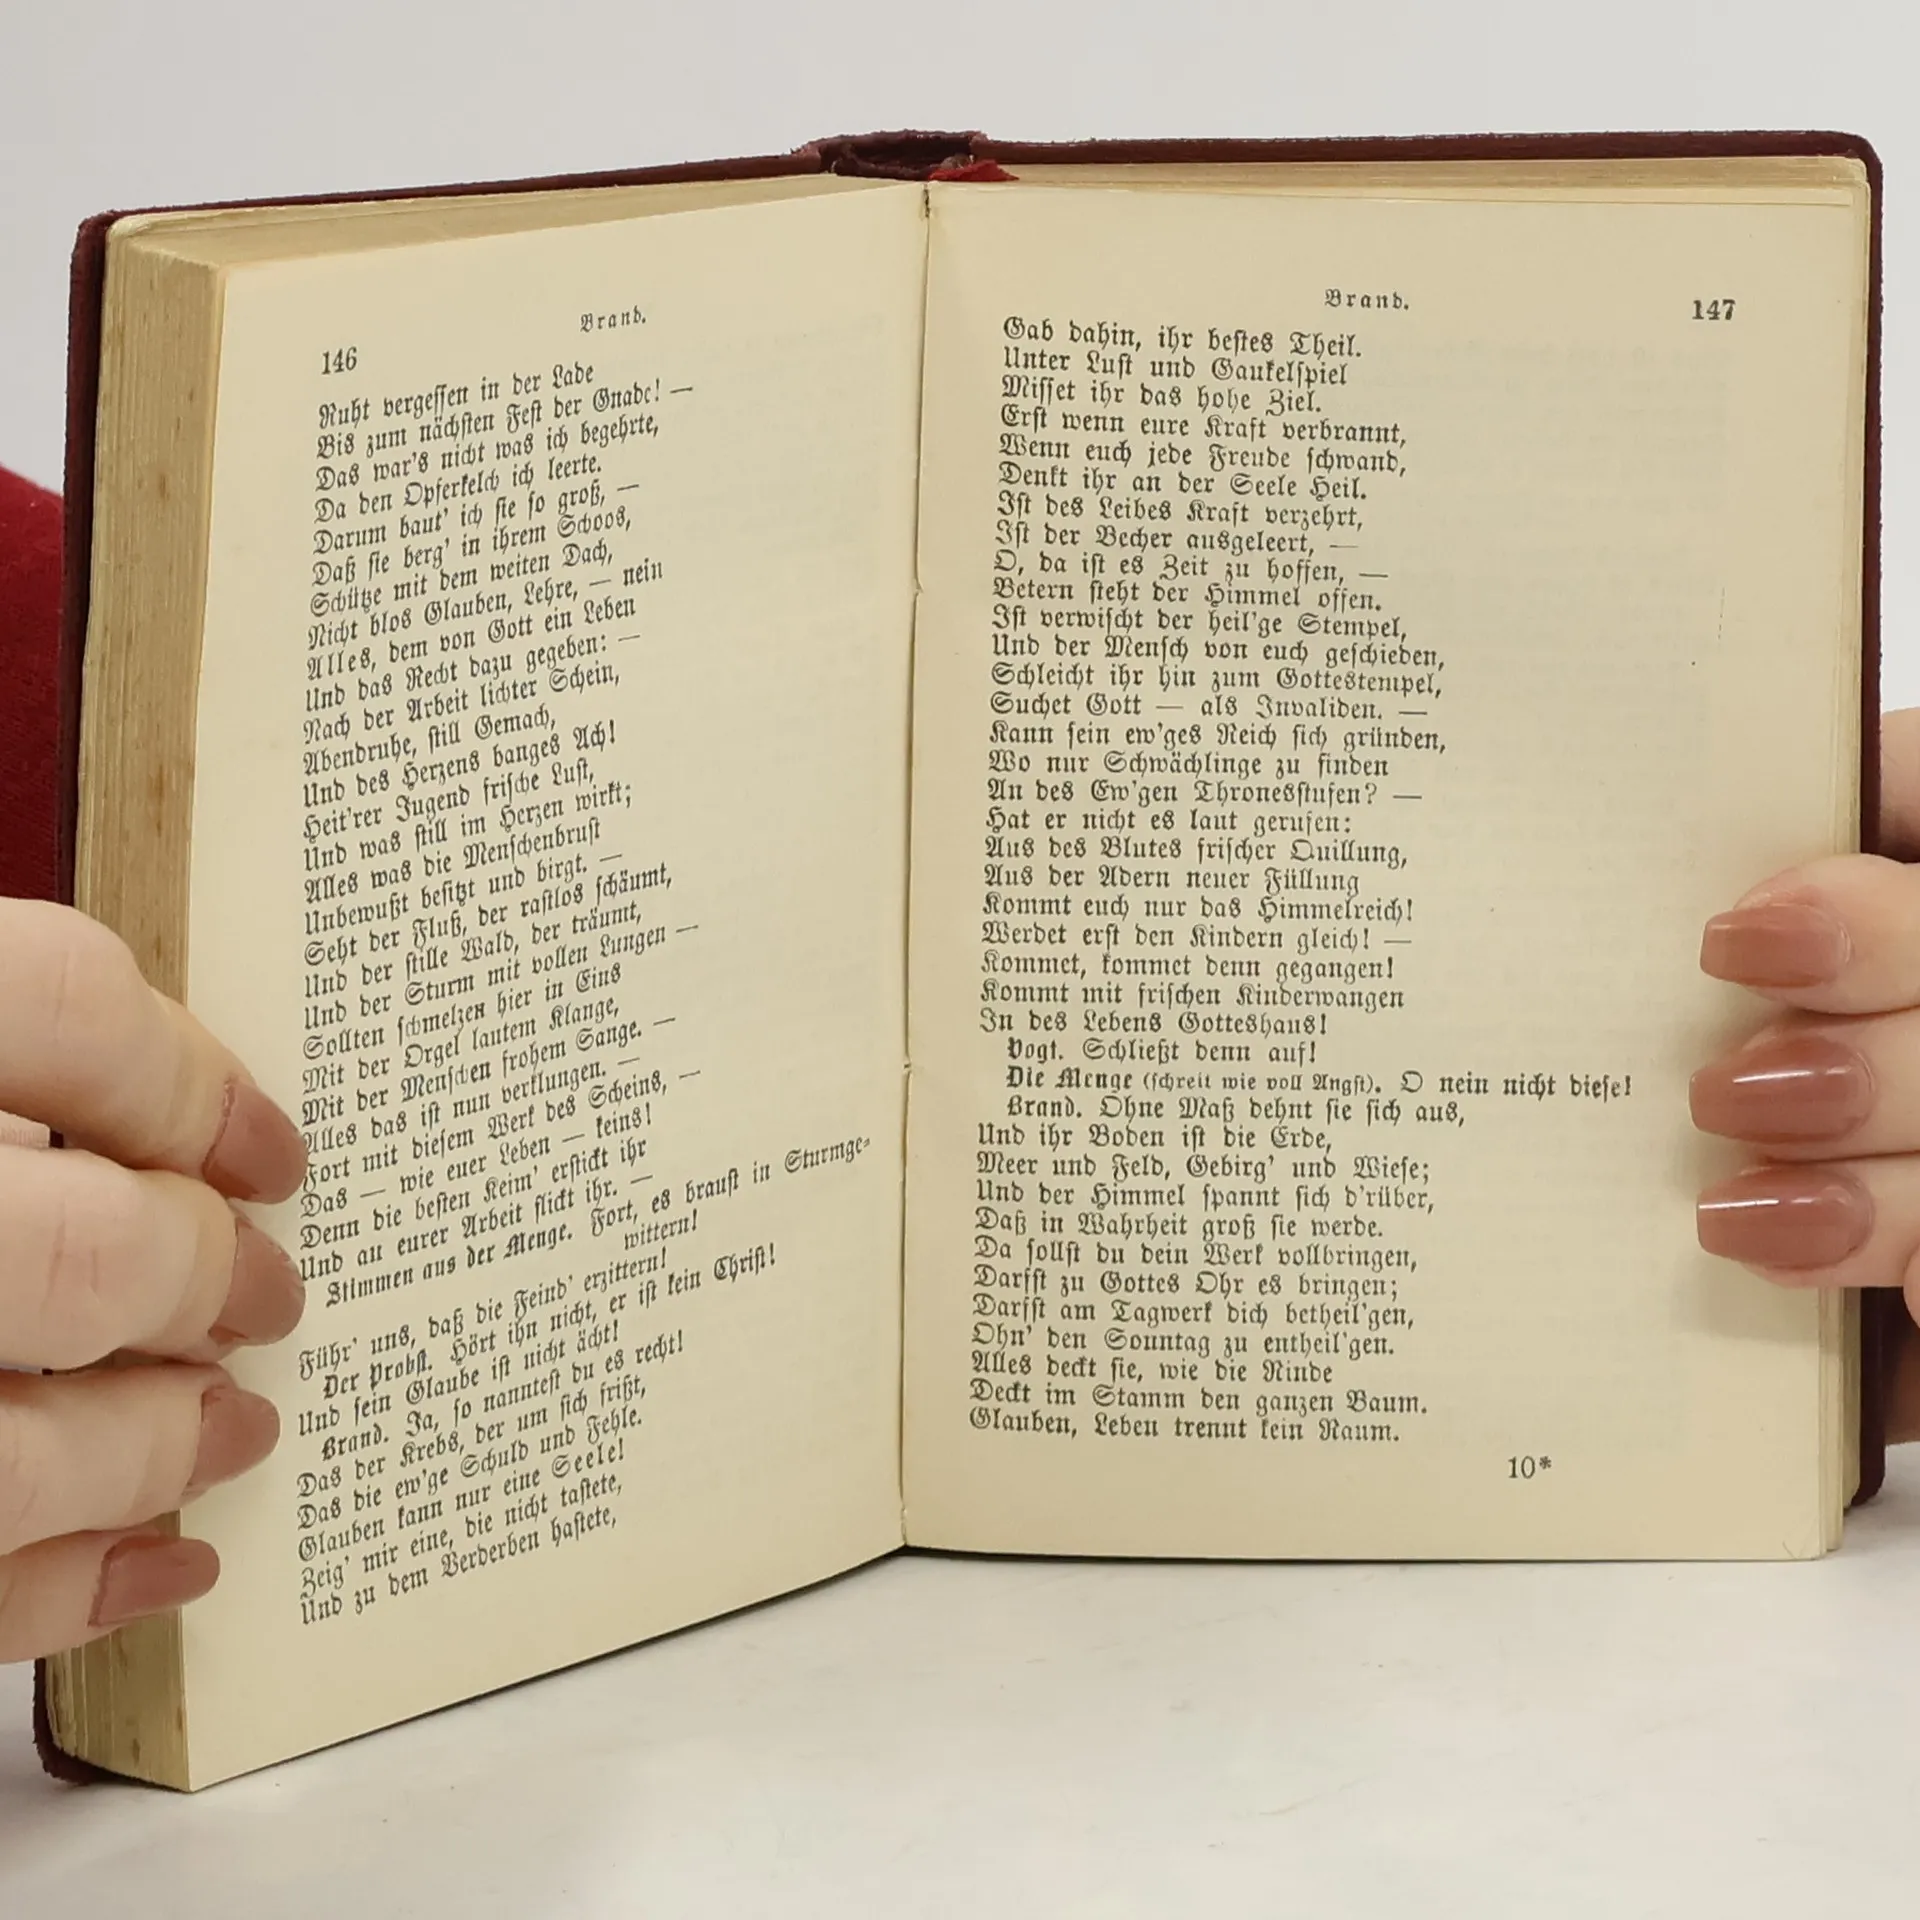 146
Brand.
Ruht vergessen in der Lade
Bis zum nächsten Fest der Gnade! —
Das war's nicht was ich begehrte,
Da den Opferkelch ich leerte.
Darum baut' ich sie so groß, —
Daß sie berg' in ihrem Schoos,
Schütze mit dem weiten Dach,
Nicht blos Glauben, Lehre, — nein
Alles, dem von Gott ein Leben
Und das Recht dazu gegeben: —
Nach der Arbeit lichter Schein,
Abendruhe, still Gemach,
Und des Herzens banges Ach!
Heit'rer Jugend frische Lust,
Und was still im Herzen wirkt;
Alles was die Menschenbrust
Unbewußt besitzt und birgt. —
Seht der Fluß, der rastlos schäumt,
Und der stille Wald, der träumt,
Und der Sturm mit vollen Lungen —
Sollten schmelzen hier in Eins
Mit der Orgel lautem Klange,
Mit der Menschen frohem Sange. —
Alles das ist nun verklungen. —
Fort mit diesem Werk des Scheins, —
Das — wie euer Leben — keins!
Denn die besten Keim' erstickt ihr
Und an eurer Arbeit flickt ihr. —
Stimmen aus der Menge. Fort, es braust in Sturmge-
wittern!
Führ' uns, daß die Feind' erzittern!
Der Probst. Hört ihn nicht, er ist kein Christ!
Und sein Glaube ist nicht ächt!
Brand. Ja, so nanntest du es recht!
Das der Krebs, der um sich frißt,
Das die ew'ge Schuld und Fehle.
Glauben kann nur eine Seele!
Zeig' mir eine, die nicht tastete,
Und zu dem Verderben hastete,
Brand.
147
Gab dahin, ihr bestes Theil.
Unter Lust und Gaukelspiel
Misset ihr das hohe Ziel.
Erst wenn eure Kraft verbrannt,
Wenn euch jede Freude schwand,
Denkt ihr an der Seele Heil.
Ist des Leibes Kraft verzehrt,
Ist der Becher ausgeleert, —
O, da ist es Zeit zu hoffen, —
Betern steht der Himmel offen.
Ist verwischt der heil'ge Stempel,
Und der Mensch von euch geschieden,
Schleicht ihr hin zum Gottestempel,
Suchet Gott — als Invaliden. —
Kann sein ew'ges Reich sich gründen,
Wo nur Schwächlinge zu finden
An des Ew'gen Thronesstufen? —
Hat er nicht es laut gerufen:
Aus des Blutes frischer Quillung,
Aus der Adern neuer Füllung
Kommt euch nur das Himmelreich!
Werdet erst den Kindern gleich! —
Kommet, kommet denn gegangen!
Kommt mit frischen Kinderwangen
In des Lebens Gotteshaus!
Vogt. Schließt denn auf!
Die Menge (schreit wie voll Angst). O nein nicht diese!
Brand. Ohne Maß dehnt sie sich aus,
Und ihr Boden ist die Erde,
Meer und Feld, Gebirg' und Wiese;
Und der Himmel spannt sich d'rüber,
Daß in Wahrheit groß sie werde.
Da sollst du dein Werk vollbringen,
Darfst zu Gottes Ohr es bringen;
Darfst am Tagwerk dich betheil'gen,
Ohn' den Sonntag zu entheil'gen.
Alles deckt sie, wie die Rinde
Deckt im Stamm den ganzen Baum.
Glauben, Leben trennt kein Raum.
10*